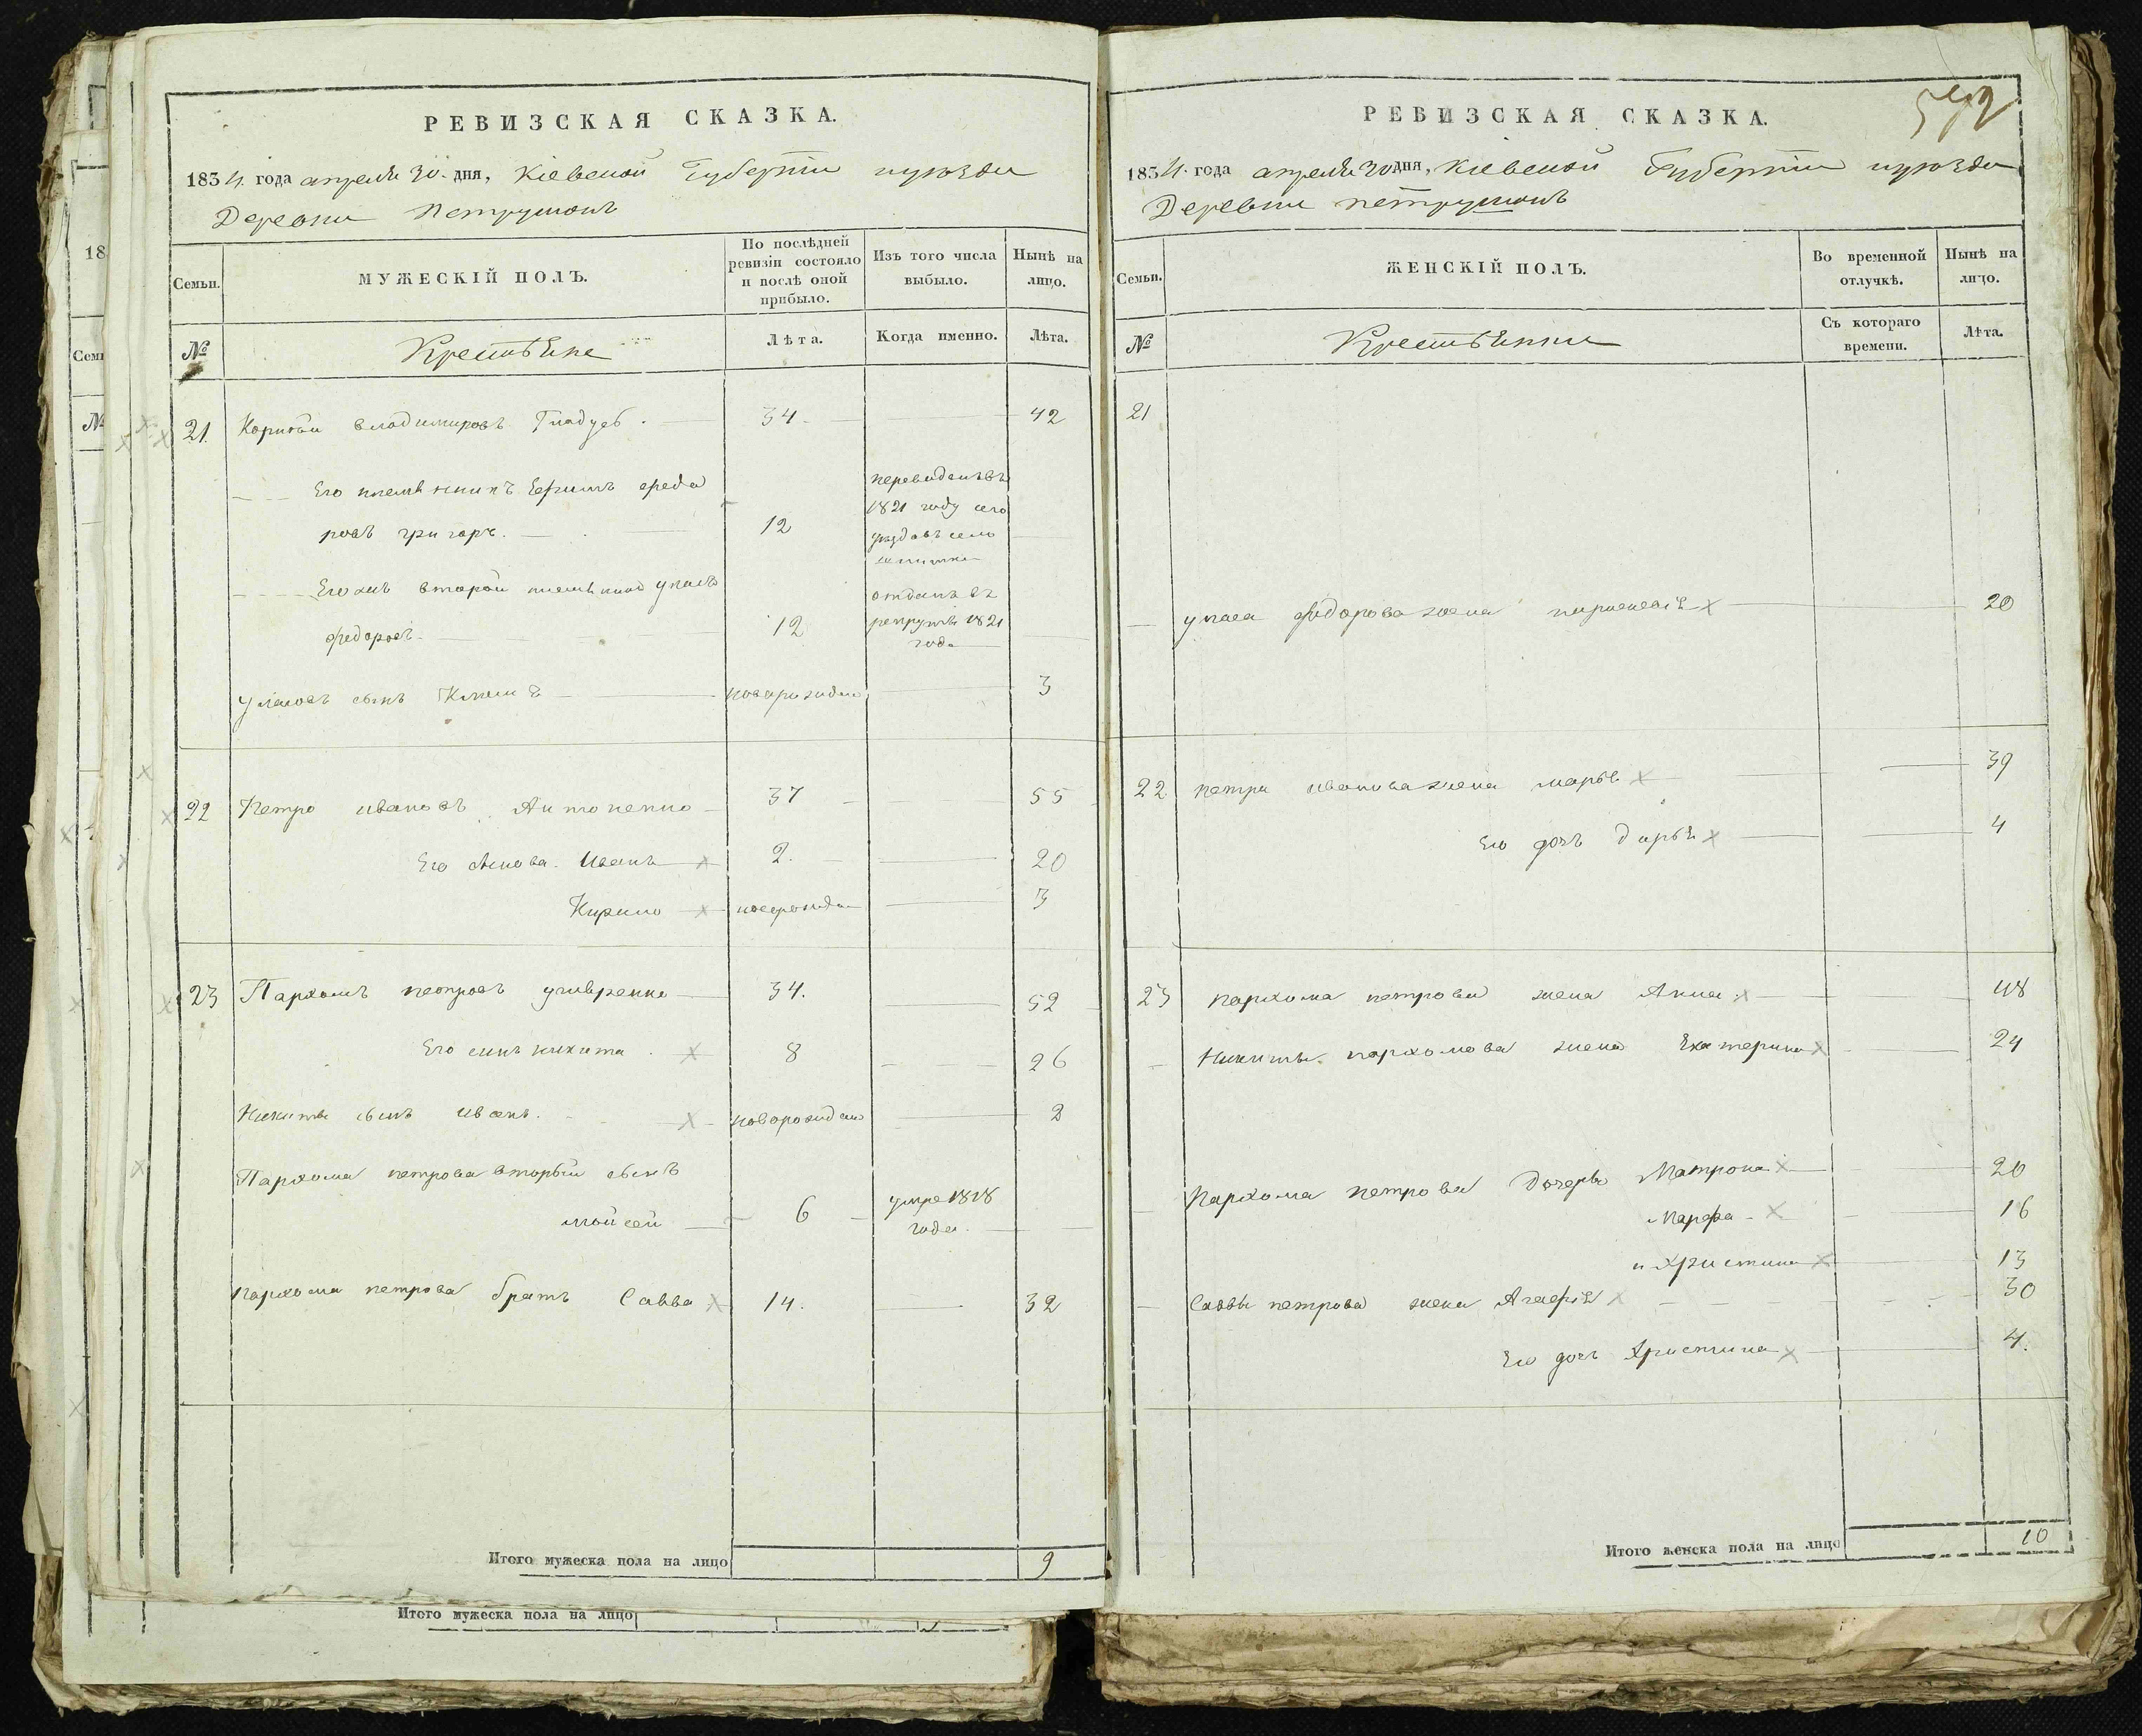 РЕВИЗСКАЯ СКАЗКА.
1834. года апреля 30. дня, Кіевской Губерніи и уезда
Деревни Петрушокъ
Семьи.
МУЖЕСКІЙ ПОЛЪ.
По послѣдней ревизіи состояло и послѣ оной прибыло.
Изъ того числа выбыло.
Нынѣ на лицо.
№
Крестьяне
Лѣта.
Когда именно.
Лѣта.
21. Корней владимировъ 34. 42
Его племянникъ Ефимъ федо
ровъ григор. 12
переведенъ въ
1821 году сего
уезда въ село
Его же второй племяникъ уласъ
федоровъ 12
отданъ въ
рекруты 1821
года
уласовъ сынъ Климъ новорожден 3
22 Петро ивановъ Антоненко 37 55
Его сынова. Иванъ 2. 20
Кирило новорожден 3
23 Пархомъ петровъ 34. 52
Его сынъ никита. 8 26
Никиты сынъ иванъ. новорожден 2
Пархома петрова вторый сынъ
мойсей 6 умре 1818
года.
пархома петрова братъ Савва 14. 32
Итого мужеска пола на лицо 9
Итого мужеска пола на лицо
РЕВИЗСКАЯ СКАЗКА.
1834. года апреля 30 дня, Кіевской Губерніи и уезда
Деревни петрушокъ
Семьи.
ЖЕНСКІЙ ПОЛЪ.
Во временной отлучкѣ.
Нынѣ на лицо.
№
Крестьянки
Съ котораго времени.
Лѣта.
21
уласа федорова жена 20
22 петра иванова жена марья 39
Его дочь дарья 4
23 пархома петрова жена Анна 48
Никиты пархомова жена Екатерина 24
Пархома петрова дочери Матрона 20
Марфа 16
и Христина 13
Саввы петрова жена Агафія 30
Его дочь Христина 4.
Итого женска пола на лицо 10
18
Семь
№